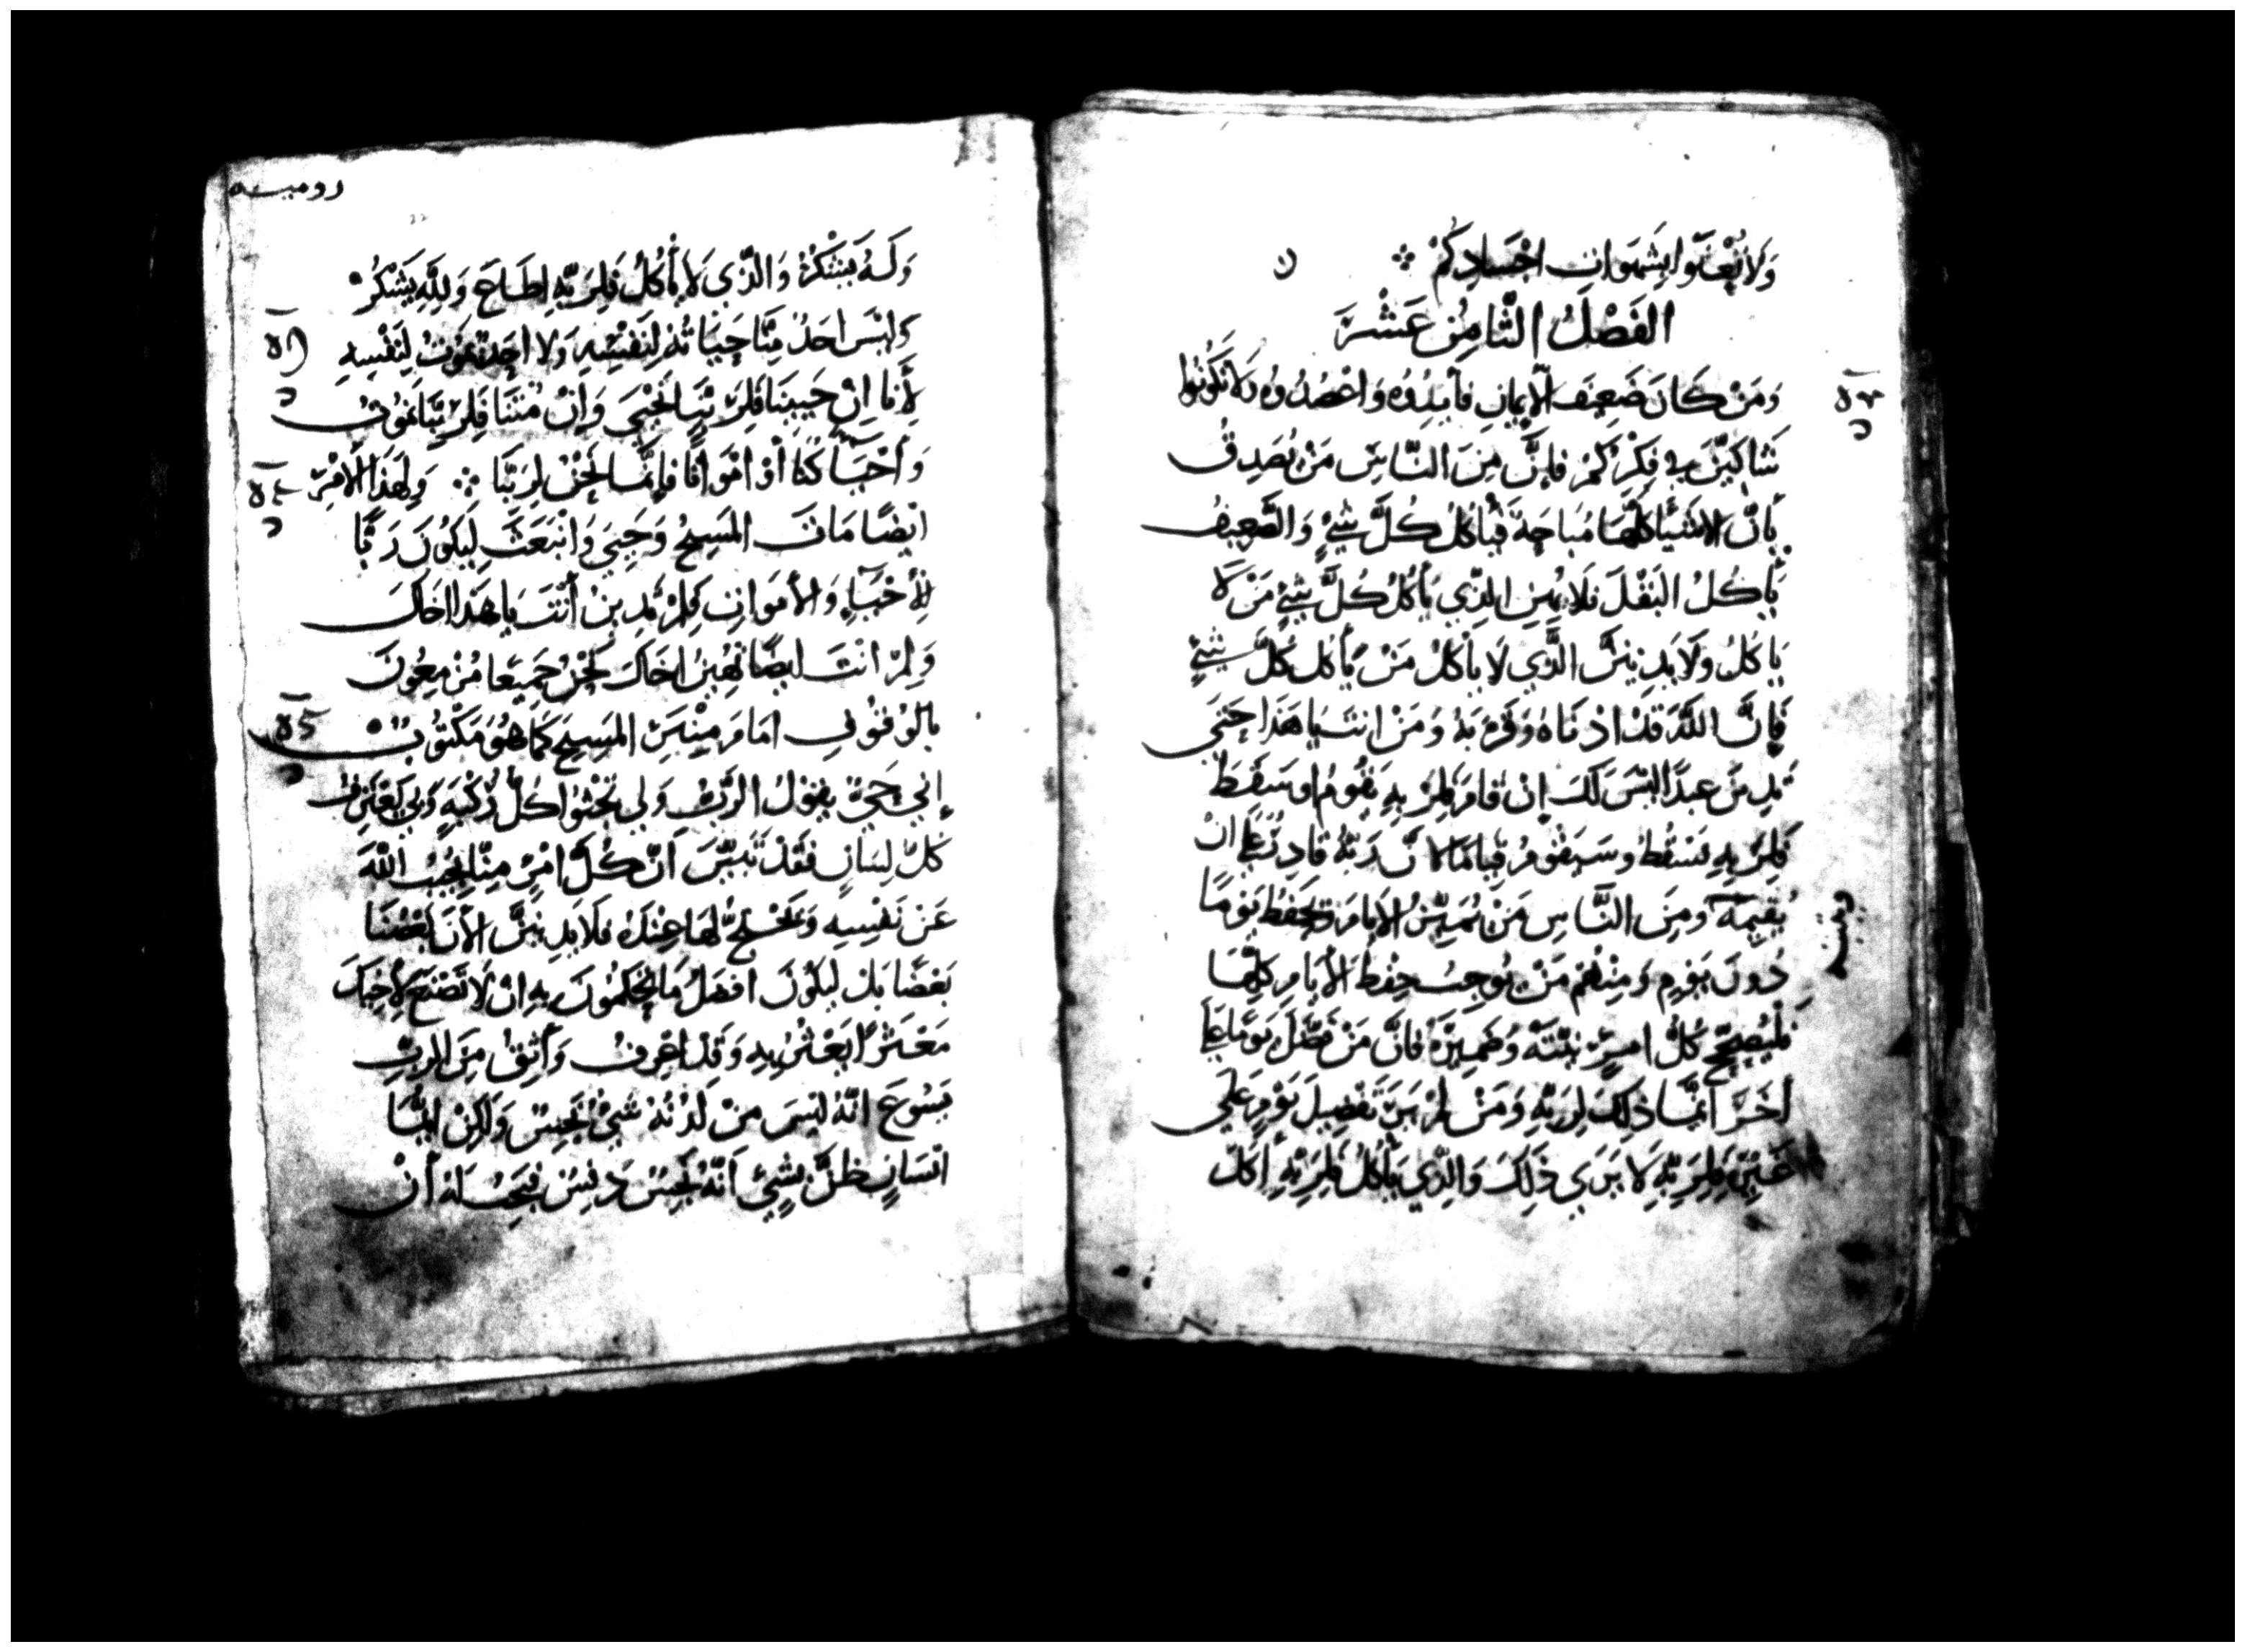 وَلَا تُعْنَوا بِشَهَوَاتِ اجْسَادِكُمْ
الفَصْلُ الثَّامِنُ عَشَرَ
وَمَنْ كَانَ ضَعِيفَ الْإِيمَانِ فأَيِّدُوُه وَاعْضُدُوُه وَلَا تَكُونُوا
شَاكِّينَ فِي فِكْرِكُمْ فَإِنَّ مِنَ النَّاسِ مَنْ يُصَدِّقُ
بِأَنَّ الاشْيَاءَ كُلَّهَا مُبَاحَةٌ فَيأكُلُ كُلَّ شَيْءٍ وَالضَّعِيفُ
يَأكُلُ البَقْلَ فَلَا يُهِينِ الَّذِي يَأكُلُ كُلَّ شَيْءٍ مَنْ لَا
يَاكُلُ وَلَا يَدِينَنَّ الَّذِي لَا يَأْكُلُ مَنْ يَأكُل كُلَّ شَيْءٍ
فَإِنَّ اللَّهَ قَدْ ادْنَاهُ وَقَرَّبَهُ وَمَنْ انتَ يَا هَذَا حَتَّى
تَدِينَ عبدًا لَيْسَ لَكَ إِنْ قَامَ فَلِرَبِّهِ يَقُومُ اوسَقَطَ
فَلِرَبِّهِ يَسْقُطُ وسَيَقُومُ قِيَامًا لانَّ رَبَّهُ قادِرٌ عَلَى انْ
يُقِيمَهُ ومِنَ النَّاسِ مَنْ يُمَيِّزُ الأيامَ وَيَحْفَظُ يَوْمًا
دُونَ يَوْمٍ وَمِنْهُم مَنْ يُوجِبُ حِفْظَ الأيَامِ كُلِّهَا
فَليُصَحِّحْ كُلُّ امرِئٍ نِيَّتَهُ وَضَمِيرَهُ فَانَّ مَنْ فَضَّلَ يَوْمًا عَلَى
اخَرَ انَّمَا ذلِكَ لِرَبِّهِ وَمَنْ لَمْ يَرَ تَفْضِيلَ يَوْمٍ عَلَى
غَيْرِهِ فَلِرَبِّهِ لَا يَرَي ذَلِكَ وَالَّذِي يَأْكُلُ فَلِرَبِّهِ أَكَلَ
رومیه
وَلَهُ يَشْكُرُ وَالَّذِي لَا يَأْكُلُ فَلِرَبِّهِ اطَاعَ وَلِلَّهِ يَشْكُرُ
وَلَيْسَ احَدٌ مِنَّا حَيَاتُهُ لِنَفْسِهِ وَلا احَدٌ يَمُوتُ لِنَفْسِهِ
لأَنَّا إِنْ حَيِينَا فَلِرَبِّنَا نَحْيَى وَإِنْ مُتْنَا فَلِرَبِّنَا نَمُوتُ
وَأَحْيَآءً كُنَّا أَوْ امْوَاتًا فَإِنَّمَا نَحْنُ لِرَبِّنَا وَلِهَذَا الأَمْرِ
ايْضًا مَاتَ المَسِيحُ وَحَيِيَ وَانْبَعَثَ لِيَكُونَ رَبًّا
لِلأَحْيَاءِ وَالأَمْوَاتِ فَلِمَ تَدِينُ أَنْتَ يَا هَذَا اخَاكَ
وَلِمَ انْتَ ايضًا تُهِينُ اخَاكَ نَحْنُ جَمِيعًا مُزْمِعُونَ
بالوُقُوفِ امَامَ مِنْبَرِ المَسِيحِ كَمَا هُوَ مَكْتُوبٌ
إِنِّي حَيٌّ يقولُ الرَّبُّ وَلِي تَجْثُوا كُلُّ رُكْبَةٍ وَبِي يَعْتَرِفُ
كُلُّ لِسَانٍ فَقَدْ تَبَيَّنَ انَّ كُلَّ امْرِئٍ مِنَّا يُجِيبُ اللَّهَ
عَنْ نَفْسِهِ وَيَحْتَجُّ لَهَا عِنْدَهُ فَلَا يَدِينَنَّ الأنَ بَعْضُنَا
بَعْضًا بَل لِيَكُونَ افضَلُ مَا تَحْكُمُونَ بِهِ انْ لَا تَضَعَ لأَخِيكَ
مَعْثَرًا يَعْثُرُ بِهِ وَقَدْ اعْرِفُ وَأَثِقُ مِنَ الرَبِّ
يَسُوعَ انَّهُ لَيْسَ مِنْ لَدُنْهُ شَيْءٌ نَجِسٌ وَلَكِنْ ايُّمَا
انْسَانٍ ظَنَّ بِشَيْءٍ أَنَّهُ نَجِسٌ دَنِسٌ فَيَجِبُ لَهُ أَنْ